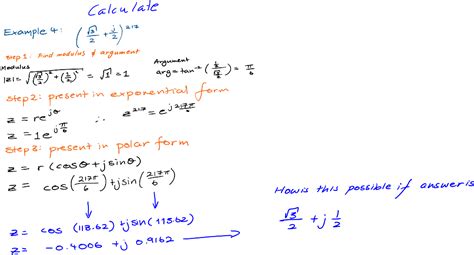 Calculate
Example 4: (√3/2 + j/2)^217
Step 1: Find modulus & argument
Modulus
|z| = √((√3/2)² + (1/2)²) = √1 = 1
Argument
arg = tan⁻¹ (½ / √3/2) = π/6
Step 2: present in exponential form
z = re^jθ
z = 1e^jπ/6 ∴ z^217 = e^j217π/6
Step 3: present in polar form
z = r (cosθ + jsinθ)
z = cos(217π/6) + jsin(217π/6)
z = cos (113.62) + jsin (113.62)
z = -0.4006 + j 0.9162
How is this possible if answer is
√3/2 + j 1/2